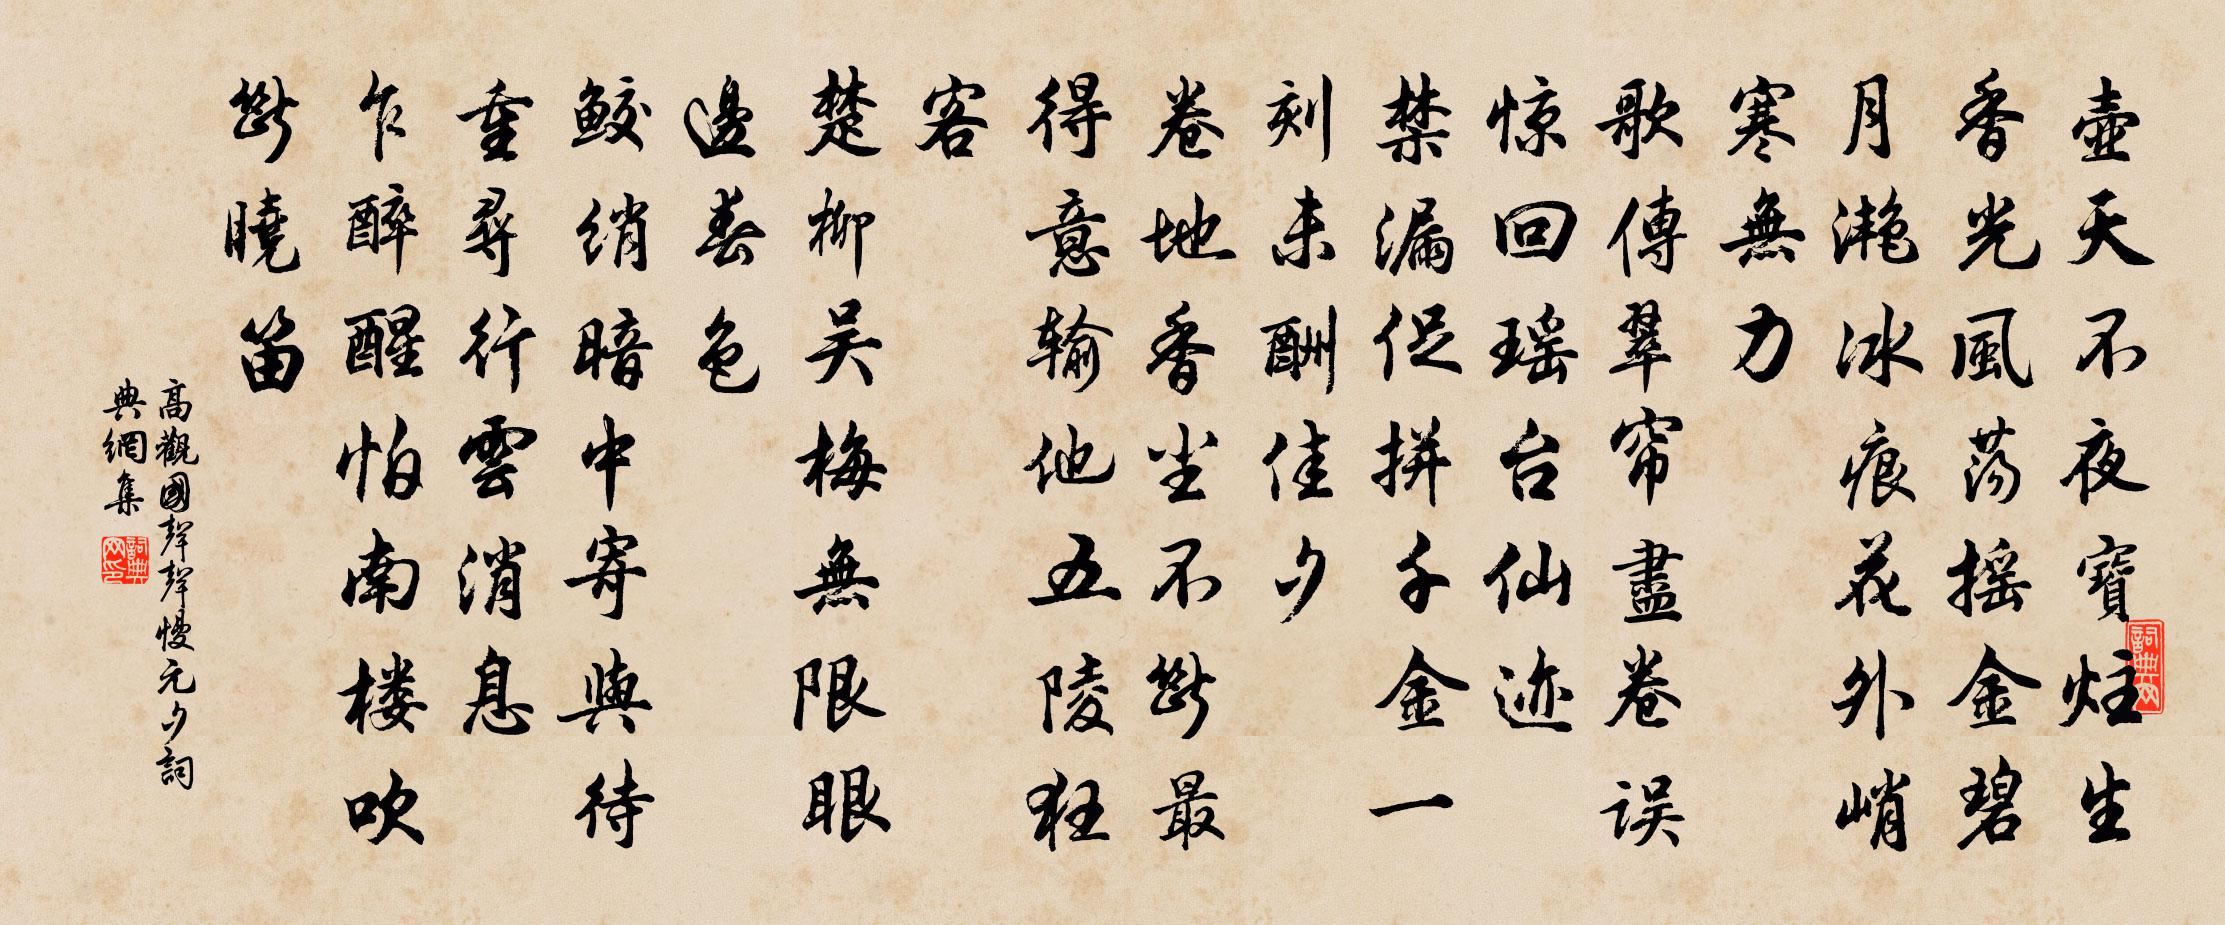 壺天不夜寶炷生
香光風蕩摇金碧
月灔冰痕花外峭
寒無力
歌傳翠帘盡卷误
惊回瑶台仙迹
禁漏促拼千金一
刻未酬佳夕
卷地香尘不斷最
得意输他五陵狂
客
楚柳吴梅無限眼
邊春色
鲛绡暗中寄與待
重尋行雲消息
乍醉醒怕南楼吹
斷曉笛
高觀國聲聲慢元夕詞
典網集
詞典网
詞典网印